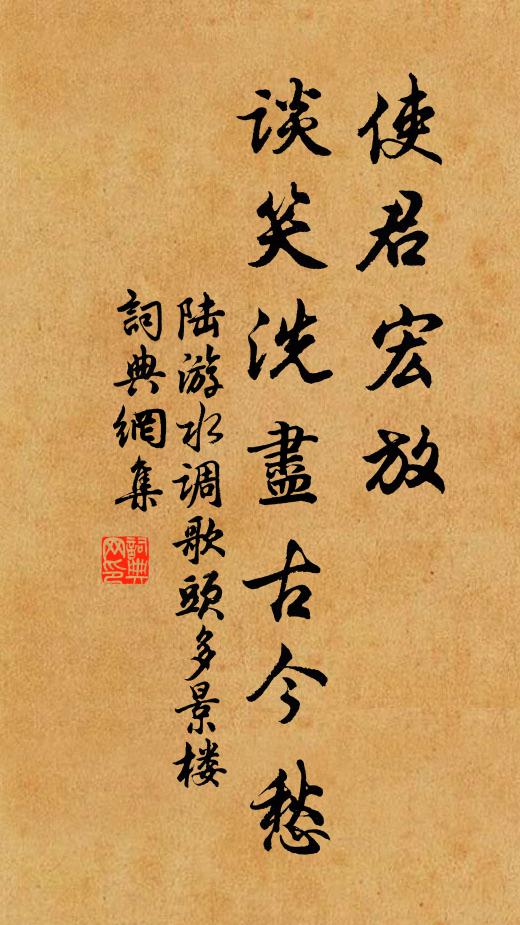 使君宏放
谈笑洗盡古今愁
陆游水调歌頭多景楼
詞典網集
詞典网印